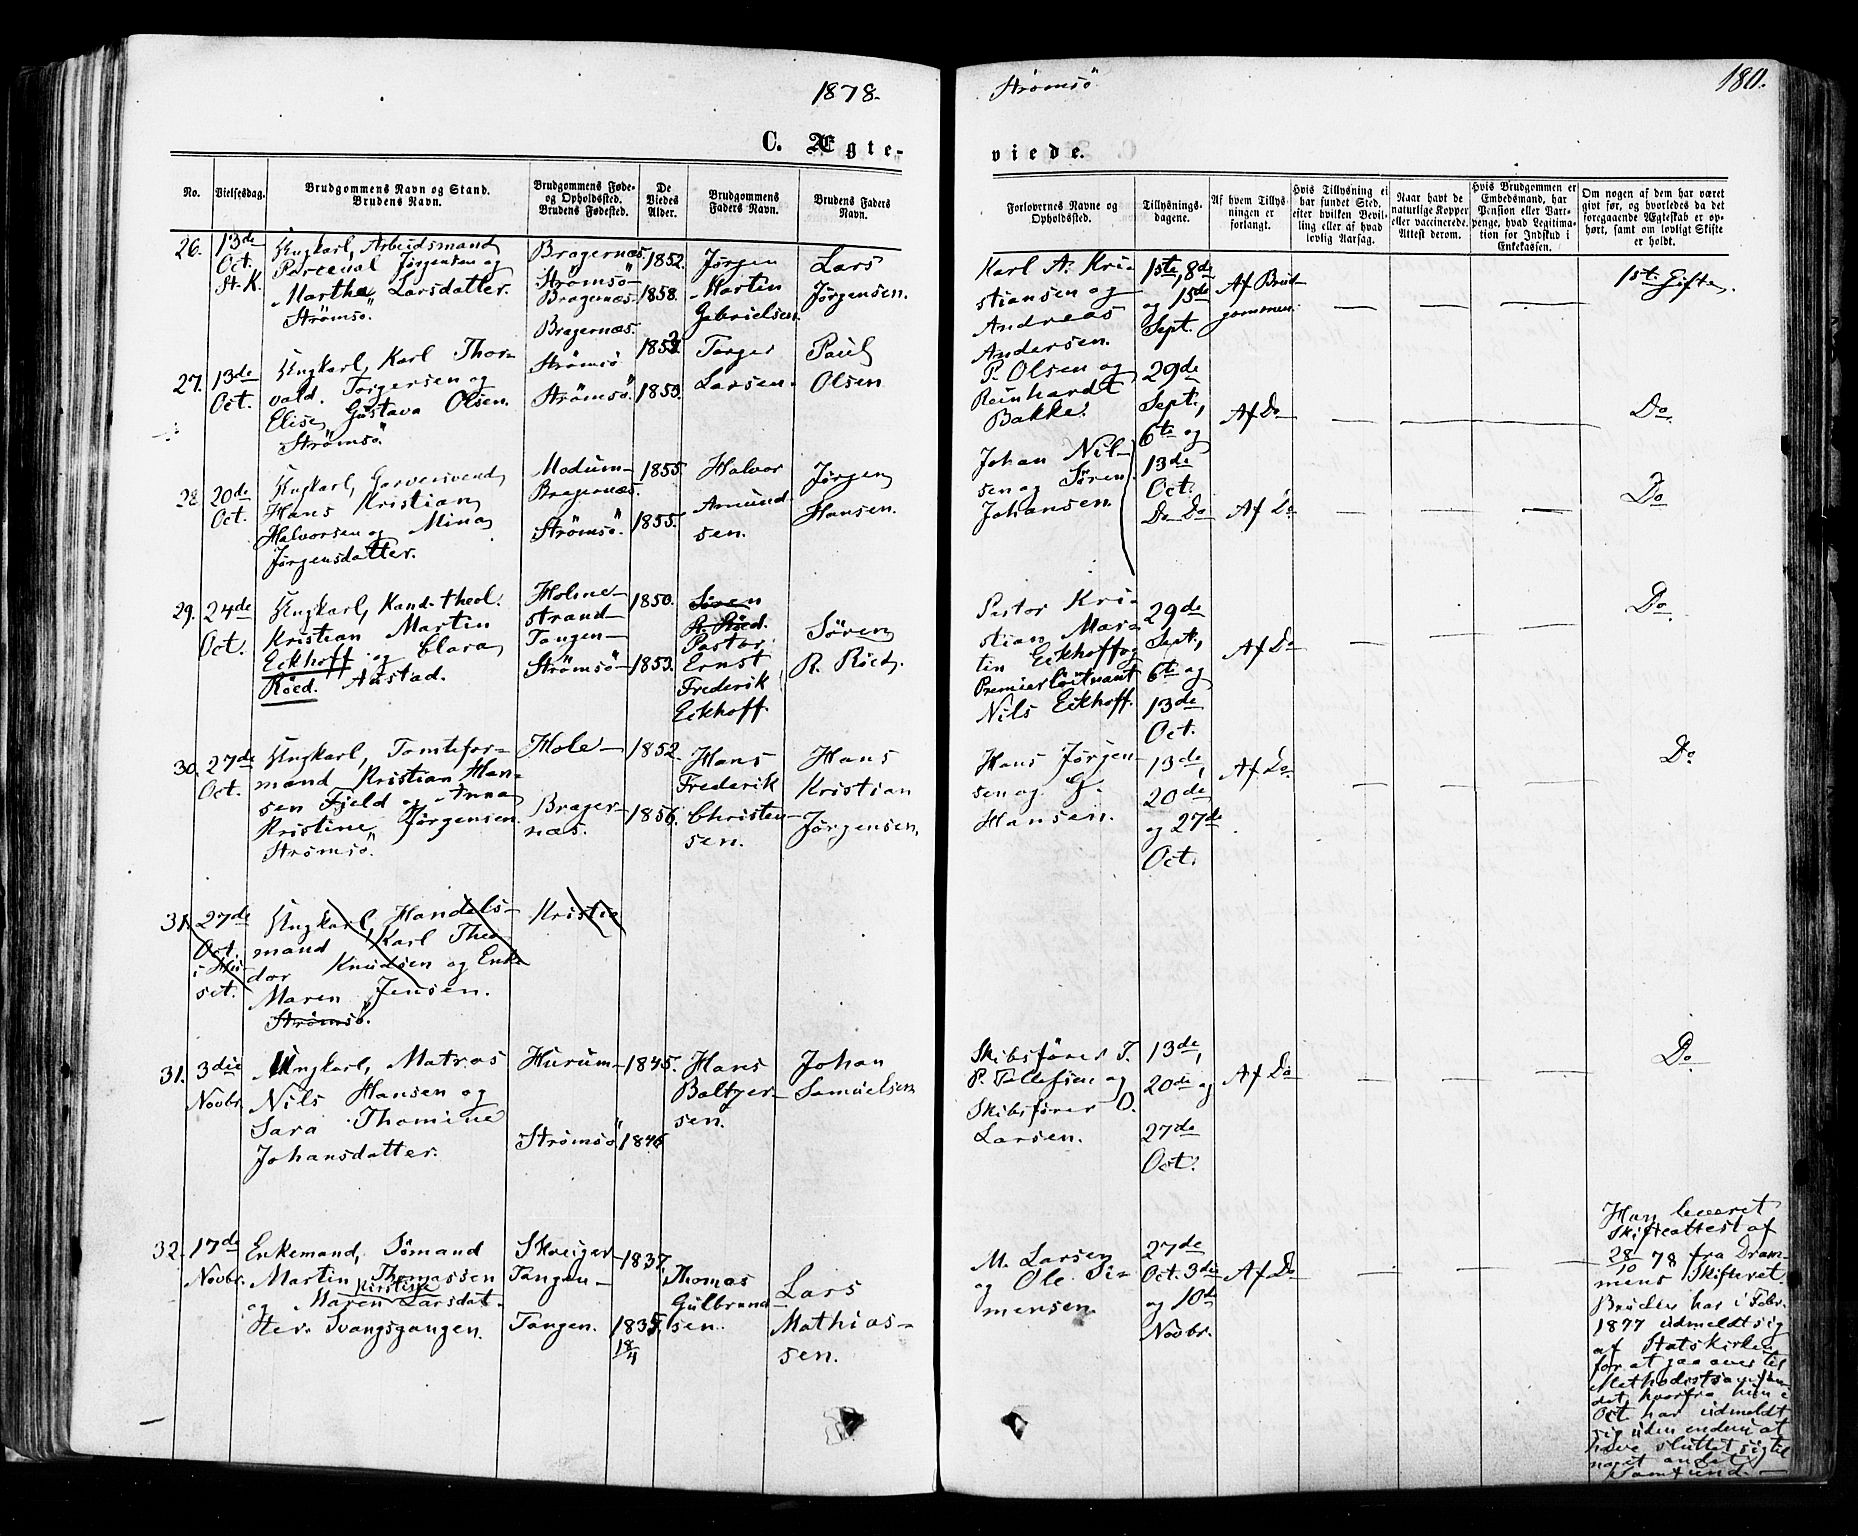 1878.
Strømsö
180.
C. Ægte-
viede.
No.
Vielsesdag.
Brudgommens Navn og Stand.
Brudens Navn.
Brudgommens Føde-
og Opholdssted.
Brudens Fødested.
De
Viedes
Alder.
Brudgommens
Faders Navn.
Brudens Faders
Navn.
Forlovernes Navne og
Opholdssted.
Tillysnings-
dagene.
Af hvem Tillys-
ningen er
forlangt.
Hvis Tillysning ei
har fundet Sted,
efter hvilken Bevil-
ling eller af hvad
lovlig Aarsag.
Naar havt de
naturlige Kopper
eller vaccinerede.
Attest derom.
Hvis Brudgommen er
Embedsmand, har
Pension eller Vart-
penge, hvad Legitima-
tion for Indskud i
Enkekassen.
Om nogen af dem har været
gift før, og hvorledes da det
foregaaende Ægteskab er op-
hørt, samt om lovligt Skifte
er holdt.
26.
13de
Oct.
St. K.
Ungkarl, Arbeidsmand
Jørgensen og
Marthe Larsdatter.
Strömsö.
Bragernæs.
Strömsö-
Bragernæs.
Bragernæs.
1852.
1858.
Jørgen
Martin
Gabrielsen.
Lars
Jørgensen.
Karl A. Kri-
stiansen og
Andreas
Andersen.
1ste, 8de
og 15de
Sept.
Af Brud-
gommen.
1st. Gifte.
27.
13de
Oct.
Ungkarl, Karl Thor-
vald. Torgersen og
Elise, Gustava Olsen.
Strömsö.
Strömsö
Strömsö.
1853.
Torger
Larsen.
Paul
Olsen
P. Olsen og
Reinhardt
Bakke.
29de
Sept.,
6te og
13de
Oct.
Af Do
Do
28.
20de
Oct.
Ungkarl, Garversvend,
Hans Kristian
Halvorsen og Mina
Jørgensdatter.
Modum-
Bragernæs.
Strömsö.
1855.
1855.
Halvor
Amund-
sen.
Jørgen
Hansen.
Johan Nil-
sen og Søren
Johansen.
Do Do
Af Do
Do
29.
24de
Oct.
Ungkarl, Kand. theol.
Kristian Martin
Eckhoff og Clara
Röed. Aastad.
Holme-
strand-
Tangen-
Strömsö-
1850.
1853.
Søren
R. Röed.
Pastor
Ernst
Frederik
Eckhoff.
Søren
R. Röed.
Pastor Kri-
stian Mar-
tin Eckhoff og
Premierlöitnant
Nils Eckhoff.
29de
Sept.,
6te og
13de
Oct.
Af Do
Do
30.
27de
Oct.
Ungkarl, Tomtefor-
mand Kristian Han-
sen Fjeld og Anna
Kristine Jørgensen.
Strömsö.
Hole-
Brager-
næs.
1852.
1856.
Hans
Frederik
Christen-
sen.
Hans
Kristian
Jørgensen.
Hans Jørgen-
sen og G.
Hansen.
13de,
20de
og 27de
Oct.
Af Do
Do
31.
27de
Oct.
i Hu-
set.
Ungkarl, Handels-
mand Karl Theo-
dor Knudsen og Enke
Maren Jensen.
Strömsö.
Kristia
31.
3die
Novbr.
Ungkarl, Matros
Nils Hansen og
Sara Thomine
Johansdatter.
Hurum-
Strömsö
1845.
1846
Hans
Baltzer-
sen.
Johan
Samuelsen
Skibsfører T.
P. Tollefsen og
Skibsfører O.
Larsen.
13de,
20de og
27de
Oct.
Af Do
Do
32.
17de
Novbr.
Enkemand, Sömand
Martin Thomassen
Kirstine
og Maren Larsdat-
ter. Svangsgangen.
Tangen-
Tangen.
1837.
1835.
18/4
Thomas
Gulbrand-
sen.
Lars
Mathias-
sen.
M. Larsen
og Ole Si-
mensen
27de
Oct. 3die
og 10de
Novbr.
Af Do
Han leveret
Skifteattest af
28/10 78 fra Dram-
mens Skifteret.
Bruden har i Febr.
1877 udmeldt sig
af Statskirken
for at gaa over til
Methodistsamfun-
det, hvorfra hun i
Oct har udmeldt
sig uden endnu at
have sluttet sig til
noget andet
Samfund.